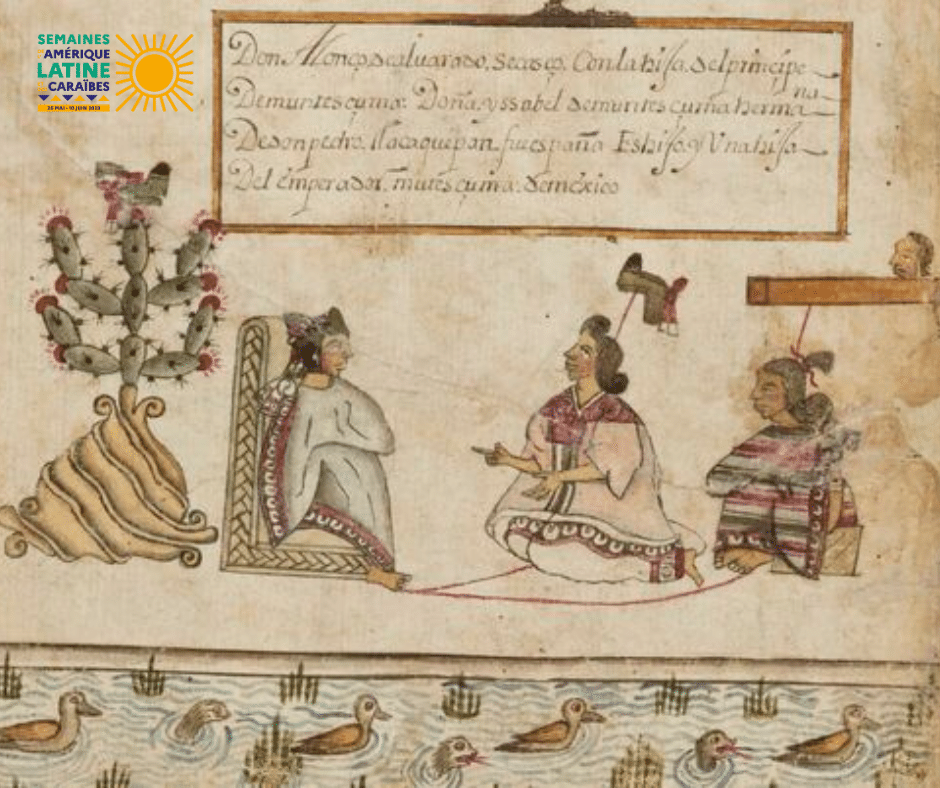 SEMAINES
AMÉRIQUE
LATINE
CARAÏBES
MAI - 10 JUIN
Don Alonço, de aluarado, se casço. Con la hija. del principe
De muntesçuma. Doña, yssabel de muntesçuma herma
na
De don pedro. tlacaquepan. fue españa Es hija, y Vna hija
Del emperador. mutesçuma. de mexico